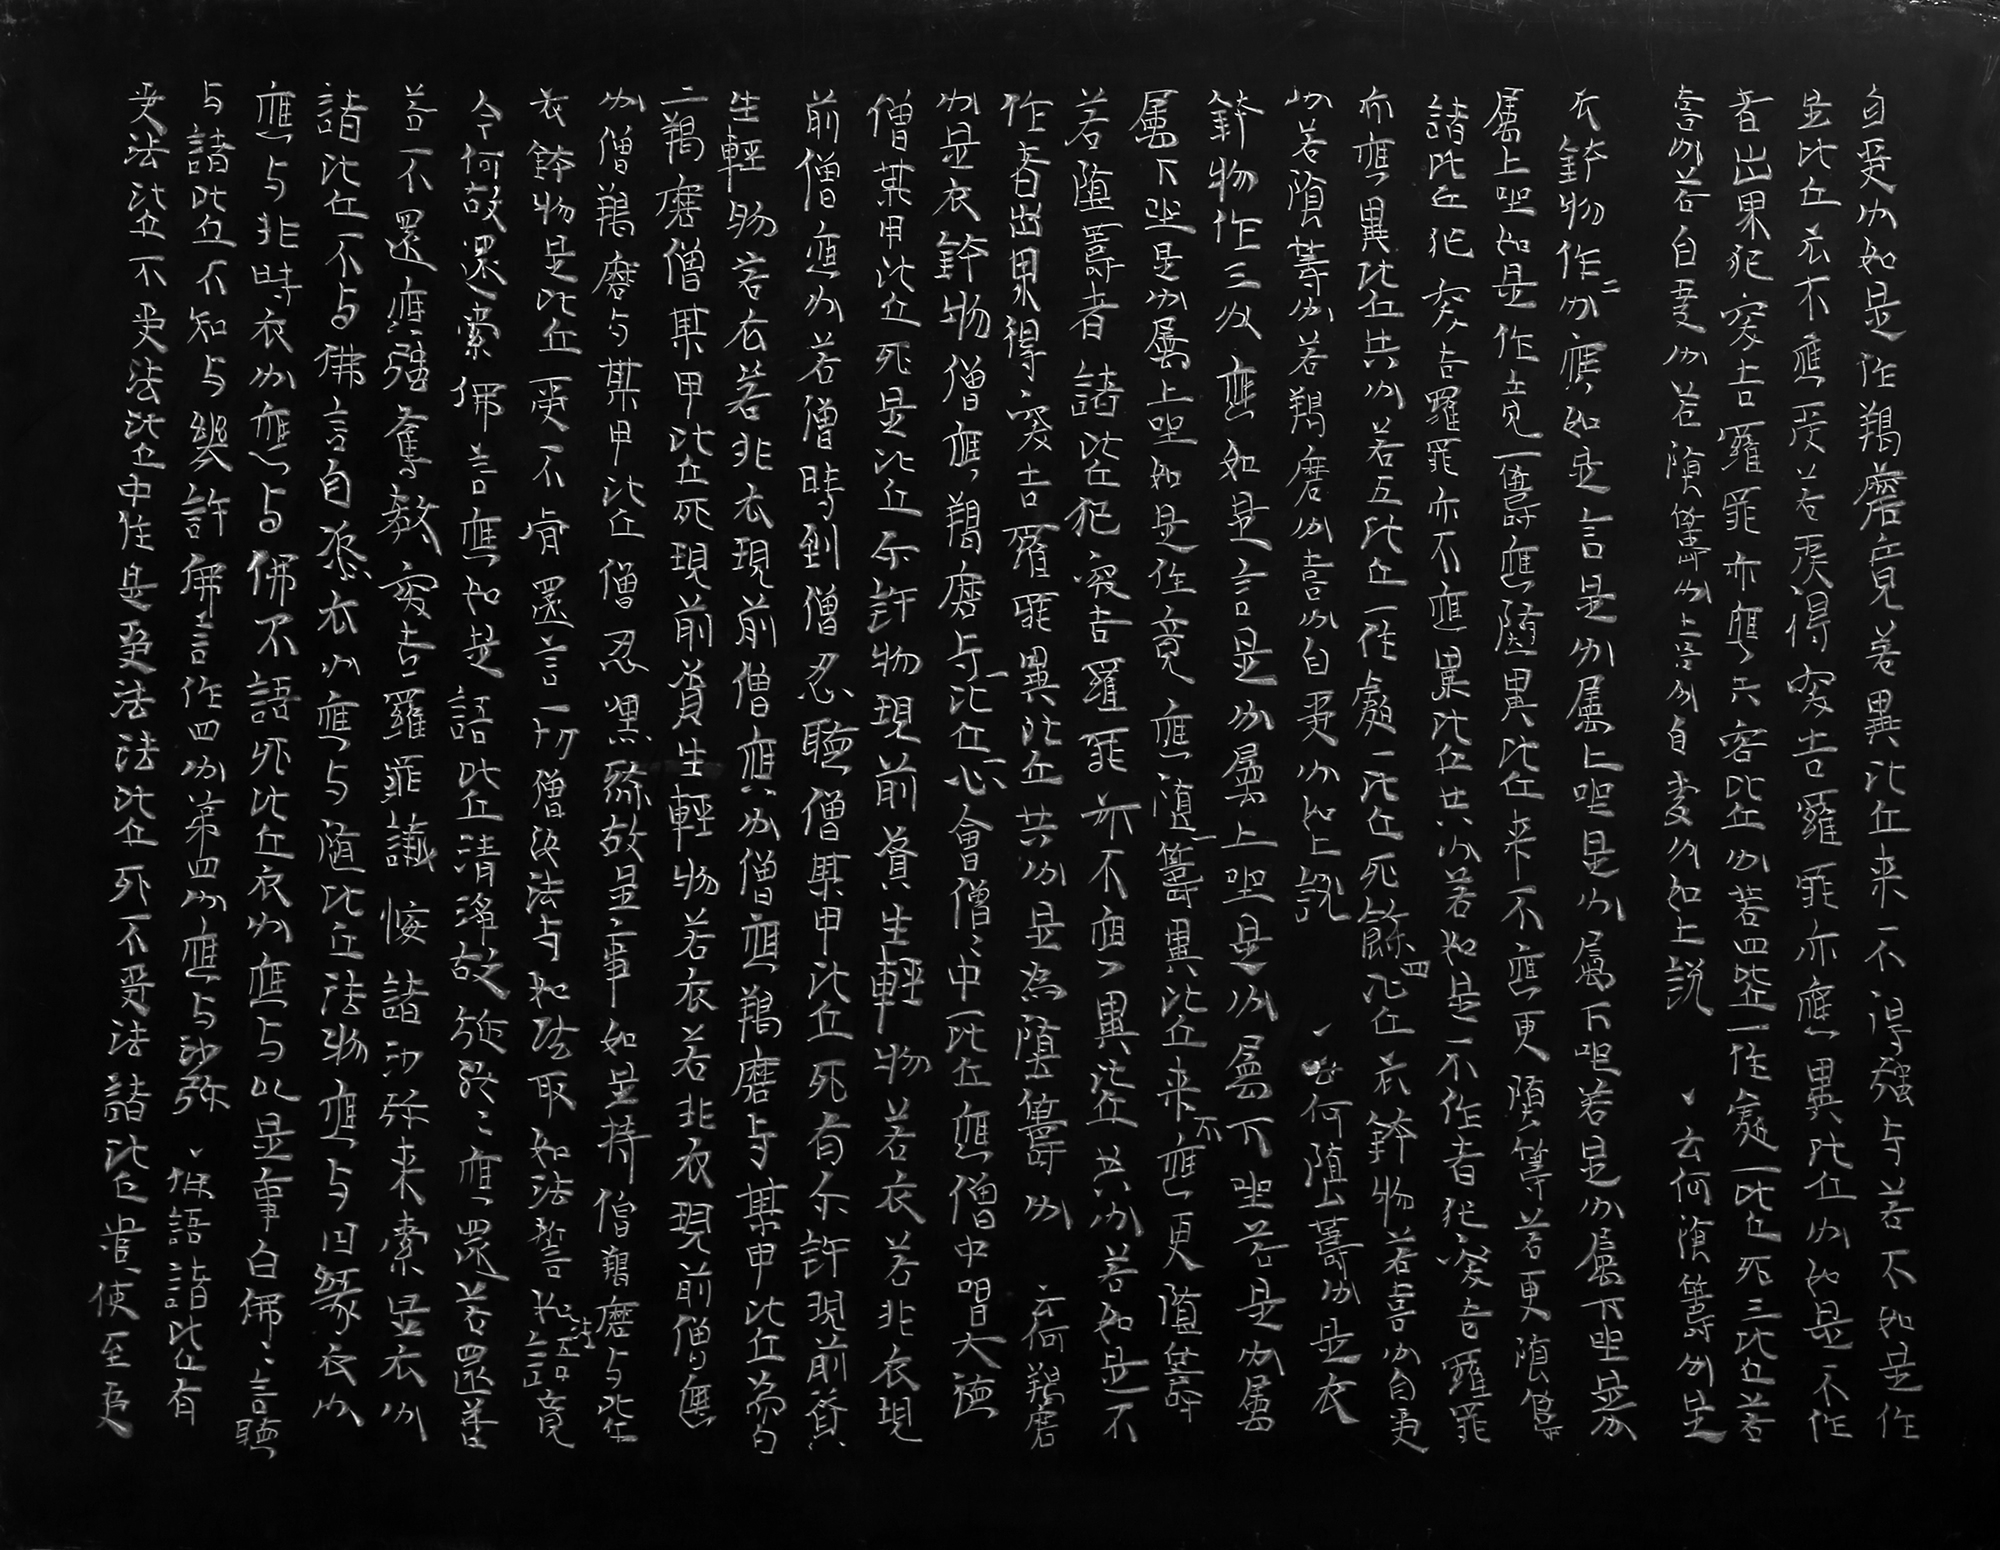 自受分如是作羯磨竟若異比丘来不得強与若不如是作
是比丘衣不應受若受得突吉羅罪亦應異比丘分如是不作
者出界犯突吉羅罪亦應与客比丘分若四比丘一住處一比丘死三比丘若
喜分若自受分若墮籌分上喜分自受分如上説 云何墮籌分是
衣鉢物作二分應如是言是分屬上坐是分屬下坐若是分屬下坐是分
屬上坐如是作竟一籌應墮異比丘来不應更墮籌若更墮籌
諸比丘犯突吉羅罪亦不應異比丘共分若如是不作者犯突吉羅罪
亦應異比丘共分若五比丘一住處一比丘死餘四比丘衣鉢物若喜分自受
分若墮籌分若羯磨分喜分自受分如上説 云何墮籌分是衣
鉢物作三分應如是言是分屬上坐是分屬下坐若是分屬
屬下坐是分屬上坐如是作竟應墮一籌異比丘来不應更墮籌
若墮籌者諸比丘犯突吉羅罪亦不應異比丘共分若如是不
作者出界得突吉羅罪異比丘共分是為墮籌分 云何羯磨
分是衣鉢物僧應羯磨与一比丘心會僧〻中一比丘應僧中唱大徳
僧某甲比丘死是比丘尓許物現前資生輕物若衣若非衣現
前僧應分若僧時到僧忍聴僧某甲比丘死有尓許現前資
生輕物若衣若非衣現前僧應分僧應羯磨与某甲比丘如白
二羯磨僧某甲比丘死現前資生輕物若衣若非衣現前僧應
分僧羯磨与某甲比丘僧忍黑然故是事如是持僧羯磨与比丘
衣鉢物是比丘受不肯還言一切僧決法与如法取如法誓如法語竟
今何故還索佛言應如是語比丘清淨故施汝〻應還若還善
若不還應強奪教突吉羅罪議悔諸沙弥来索是衣分
諸比丘不与佛言自恣衣分應与随比丘法物應与因緣衣分
應与非時衣分應与佛不語死比丘衣分應与以是事白佛〻言聴
与諸比丘不知与幾許佛言作四分第四分應与沙弥 佛語諸比丘有
受法比丘不受法比丘中住是受法比丘死不受法諸比丘遣使至受